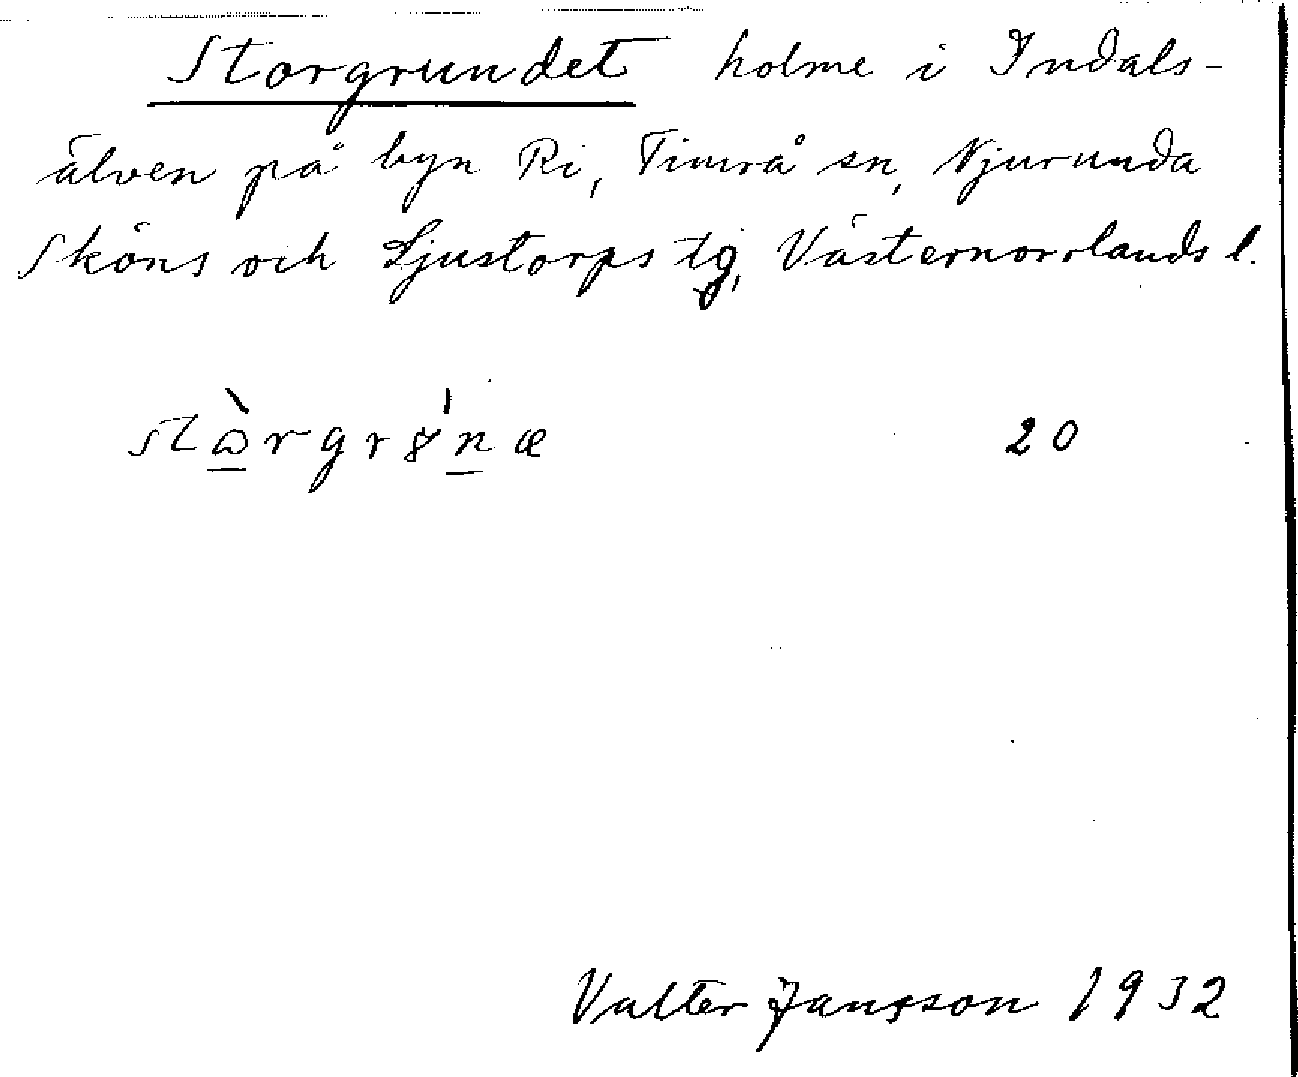 Storgrundet holme i Indals-
älven på byn Ri, Timrå sn, Njurunda
Sköns och Ljustorps tg, Västernorrlands l.
20
Valter Jansson 1932